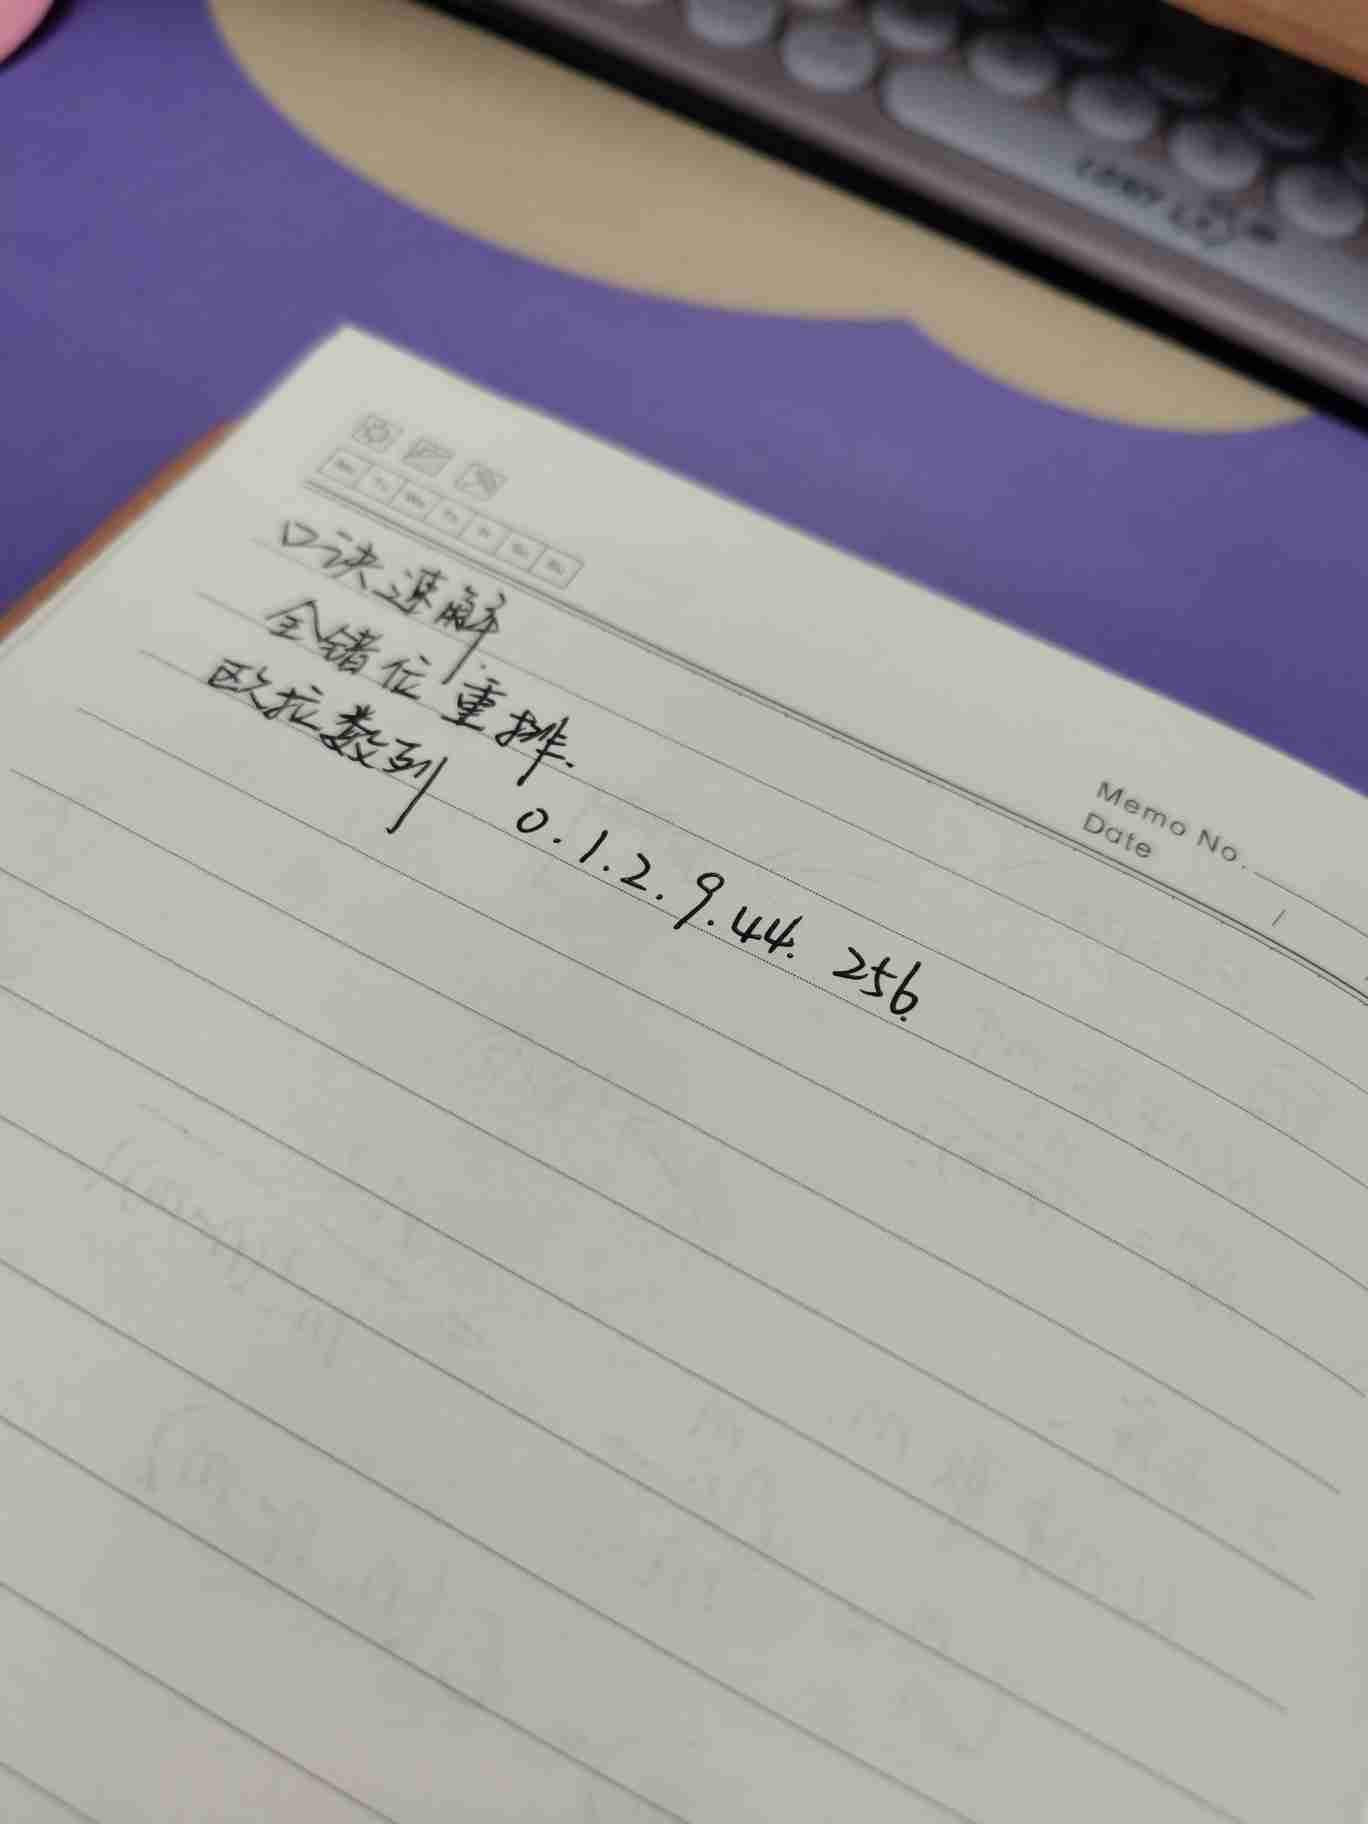 口诀速解.
全错位重排.
欧拉数列 0.1.2.9.44. 256.
Memo No.
Date